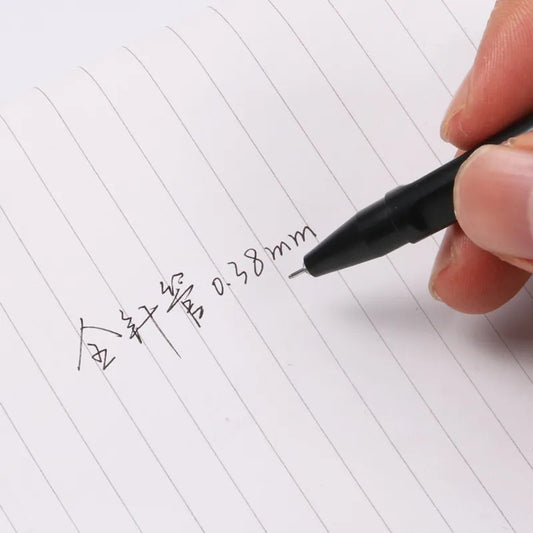 全針管0.38mm